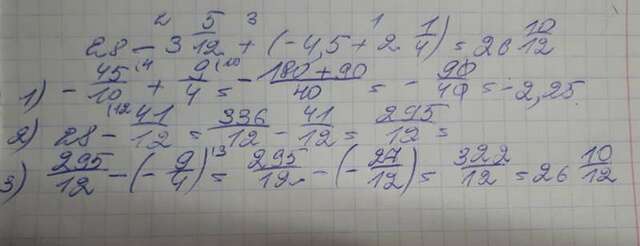 2 3 1
28 - 3 5/12 + (-4,5 + 2 1/4) = 26 10/12
1) - 45/10 (4 + 9/4 (10 = - 180+90/40 = - 90/40 = -2,25
2) 28 (12 - 41/12 = 336/12 - 41/12 = 295/12 =
3) 295/12 - (- 9/4) (3 = 295/12 - (- 27/12) = 322/12 = 26 10/12